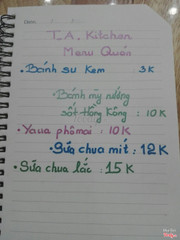 T.A. Kitchen
Menu Quán
• Bánh su kem 3K
• Bánh mỳ nướng
sốt Hồng Kông : 10K
• Yaua phômai : 10K
• Sữa chua mít : 12K
• Sữa chua lắc : 15K